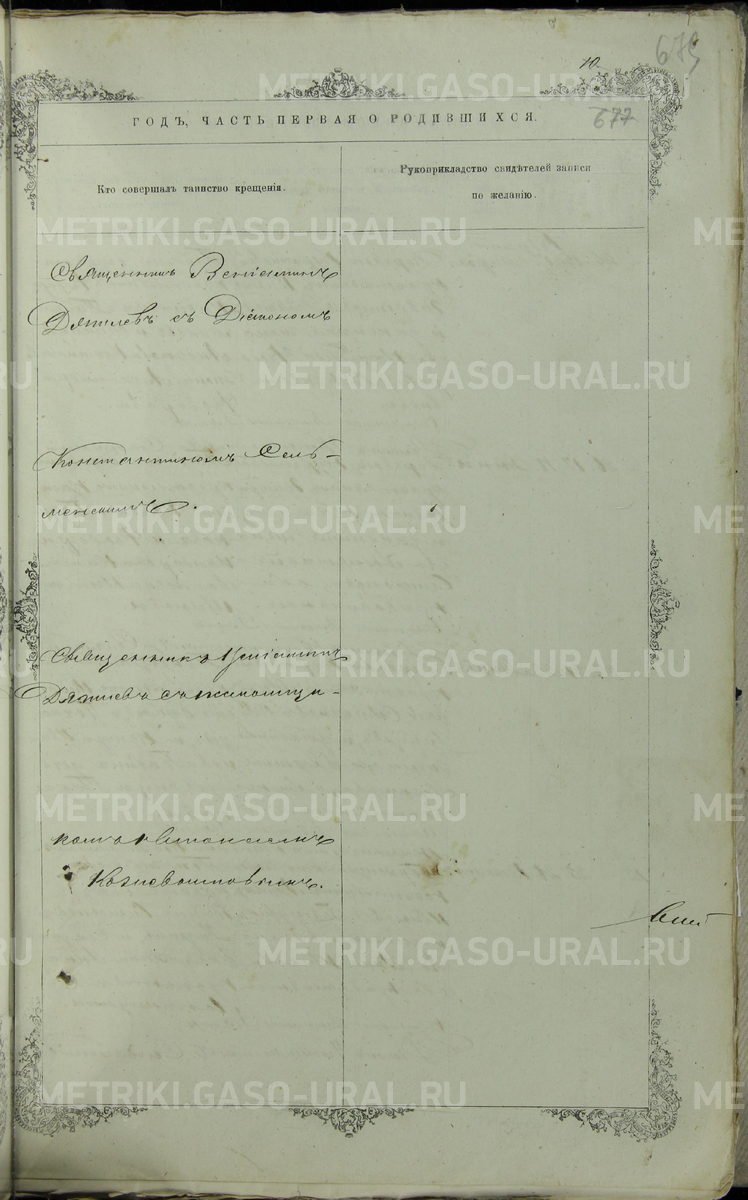 10
675
677
ГОДЪ, ЧАСТЬ ПЕРВАЯ О РОДИВШИХСЯ.
Кто совершалъ таинство крещенія.
Рукоприкладство свидѣтелей записи
по желанію.
Священникъ Веніаминъ
Дягилевъ съ Діакономъ
Константиномъ Сель-
менскимъ.
Священникъ Веніаминъ
Дягилевъ съ псаломщи-
комъ
METRIKI.GASO-URAL.RU